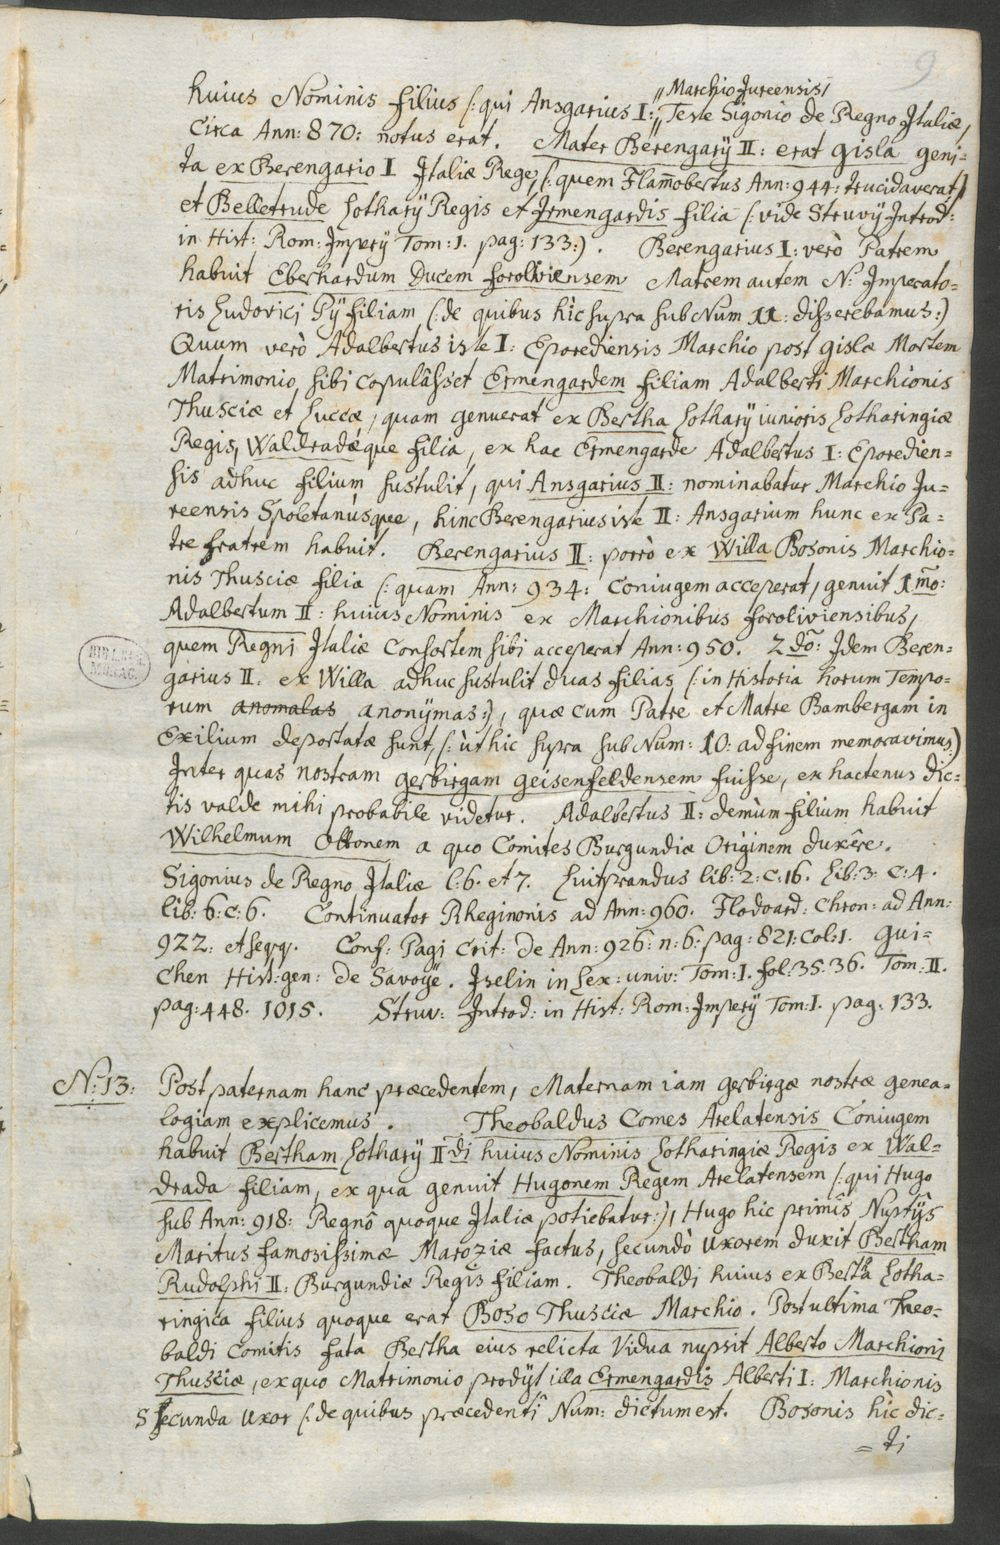 9
Marchio Jureensis/
huius Nominis Filius /: qui Ansgarius I: // Teste Sigonio de Regno Italiæ,
Circa Ann: 870: notus erat. Mater Berengarÿ II: erat Gisla geni=
ta ex Berengario I Italiæ Rege, /: quem Flam̃obertus Ann: 944: trucidaverat/
et Belletrude Lotharÿ Regis et Irmengardis Filia /: vide Struvÿ Introd:
in Hist: Rom: Imperÿ Tom: I. pag: 133:). Berengarius I: verò Patrem
habuit Eberhardum Ducem Foroliviensem Matrem autem N: Imperato=
ris Ludovici Pÿ Filiam /: de quibus hîc supra sub Num 11: disserebamus:)
Quum verò Adalbertus iste I: Eporediensis Marchio post Gislæ Mortem
Matrimonio sibi copulâsset Ermengardem Filiam Adalberti Marchionis
Thusciæ et Luccæ, quam genuerat ex Bertha Lotharÿ iunioris Lotharingiæ
Regis, Waldradæque Filia, ex hac Ermengarde Adalbertus I: Eporedien=
sis adhuc Filium sustulit, qui Ansgarius II: nominabatur Marchio Ju=
reensis Spoletanúsque, hinc Berengarius iste II: Ansgarium hunc ex Pa=
tre Fratrem habuit. Berengarius II: porrò ex Willa Bosonis Marchio=
nis Thusciæ Filia /: quam Ann: 934: Coniugem acceperat, genuit 1mo:
Adalbertum II: huius Nominis ex Marchionibus Foroliviensibus,
quem Regni Italiæ Consortem sibi acceperat Ann: 950. 2do: Idem Beren=
garius II: ex Willa adhuc sustulit duas Filias /: in Historia horum Tempo=
rum anomalas anonÿmas:), quæ cum Patre et Matre Bambergam in
Exilium deportatæ sunt, /: ùt hic supra sub Num: 10: ad finem memoravimus:)
Inter quas nostram Gerbirgam Geisenfeldensem fuisse, ex hactenus dic=
tis valde mihi probabile videtur. Adalbertus II: demùm Filium habuit
Wilhelmum Ottonem a quo Comites Burgundiæ Originem duxêre.
Sigonius de Regno Italiæ l: 6. et 7. Luitprandus lib: 2: c: 16. Lib: 3: c: 4.
lib: 6: c: 6. Continuator Rheginonis ad Ann: 960. Flodoard: Chron: ad Ann:
922: et seqq. Conf: Pagi Crit: de Ann: 926: n: 6: pag: 821: Col: 1. Gui=
chen Hist: gen: de Savoÿe. Iselin in Lex: univ: Tom: I. fol: 35. 36. Tom: II.
pag: 448. 1015. Struv: Introd: in Hist: Rom: Imperÿ Tom: I. pag: 133.
N: 13: Post paternam hanc præcedentem, Maternam iam Gerbirgæ nostræ genea=
logiam explicemus. Theobaldus Comes Arelatensis Coniugem
habuit Bertham Lotharÿ IIdi huius Nominis Lotharingiæ Regis ex Wal=
drada Filiam, ex qua genuit Hugonem Regem Arelatensem /: qui Hugo
sub Ann: 918: Regnô quoque Italiæ potiebatur:), Hugo hic primîs Nuptÿs
Maritus famosissimæ Maroziæ factus, secundò Uxorem duxit Bertham
Rudolphi II: Burgundiæ Regis Filiam. Theobaldi huius ex Bertha Lotha=
ringica Filius quoque erat Boso Thusciæ Marchio. Post ultima Theo=
baldi Comitis Fata Bertha eius relicta Vidua nupsit Alberto Marchioni
Thusciæ, ex quo Matrimonio prodÿt illa Ermengardis Alberti I: Marchionis
Secunda Uxor /: de quibus præcedenti Num: dictum est. Bosonis hîc dic=
= ti